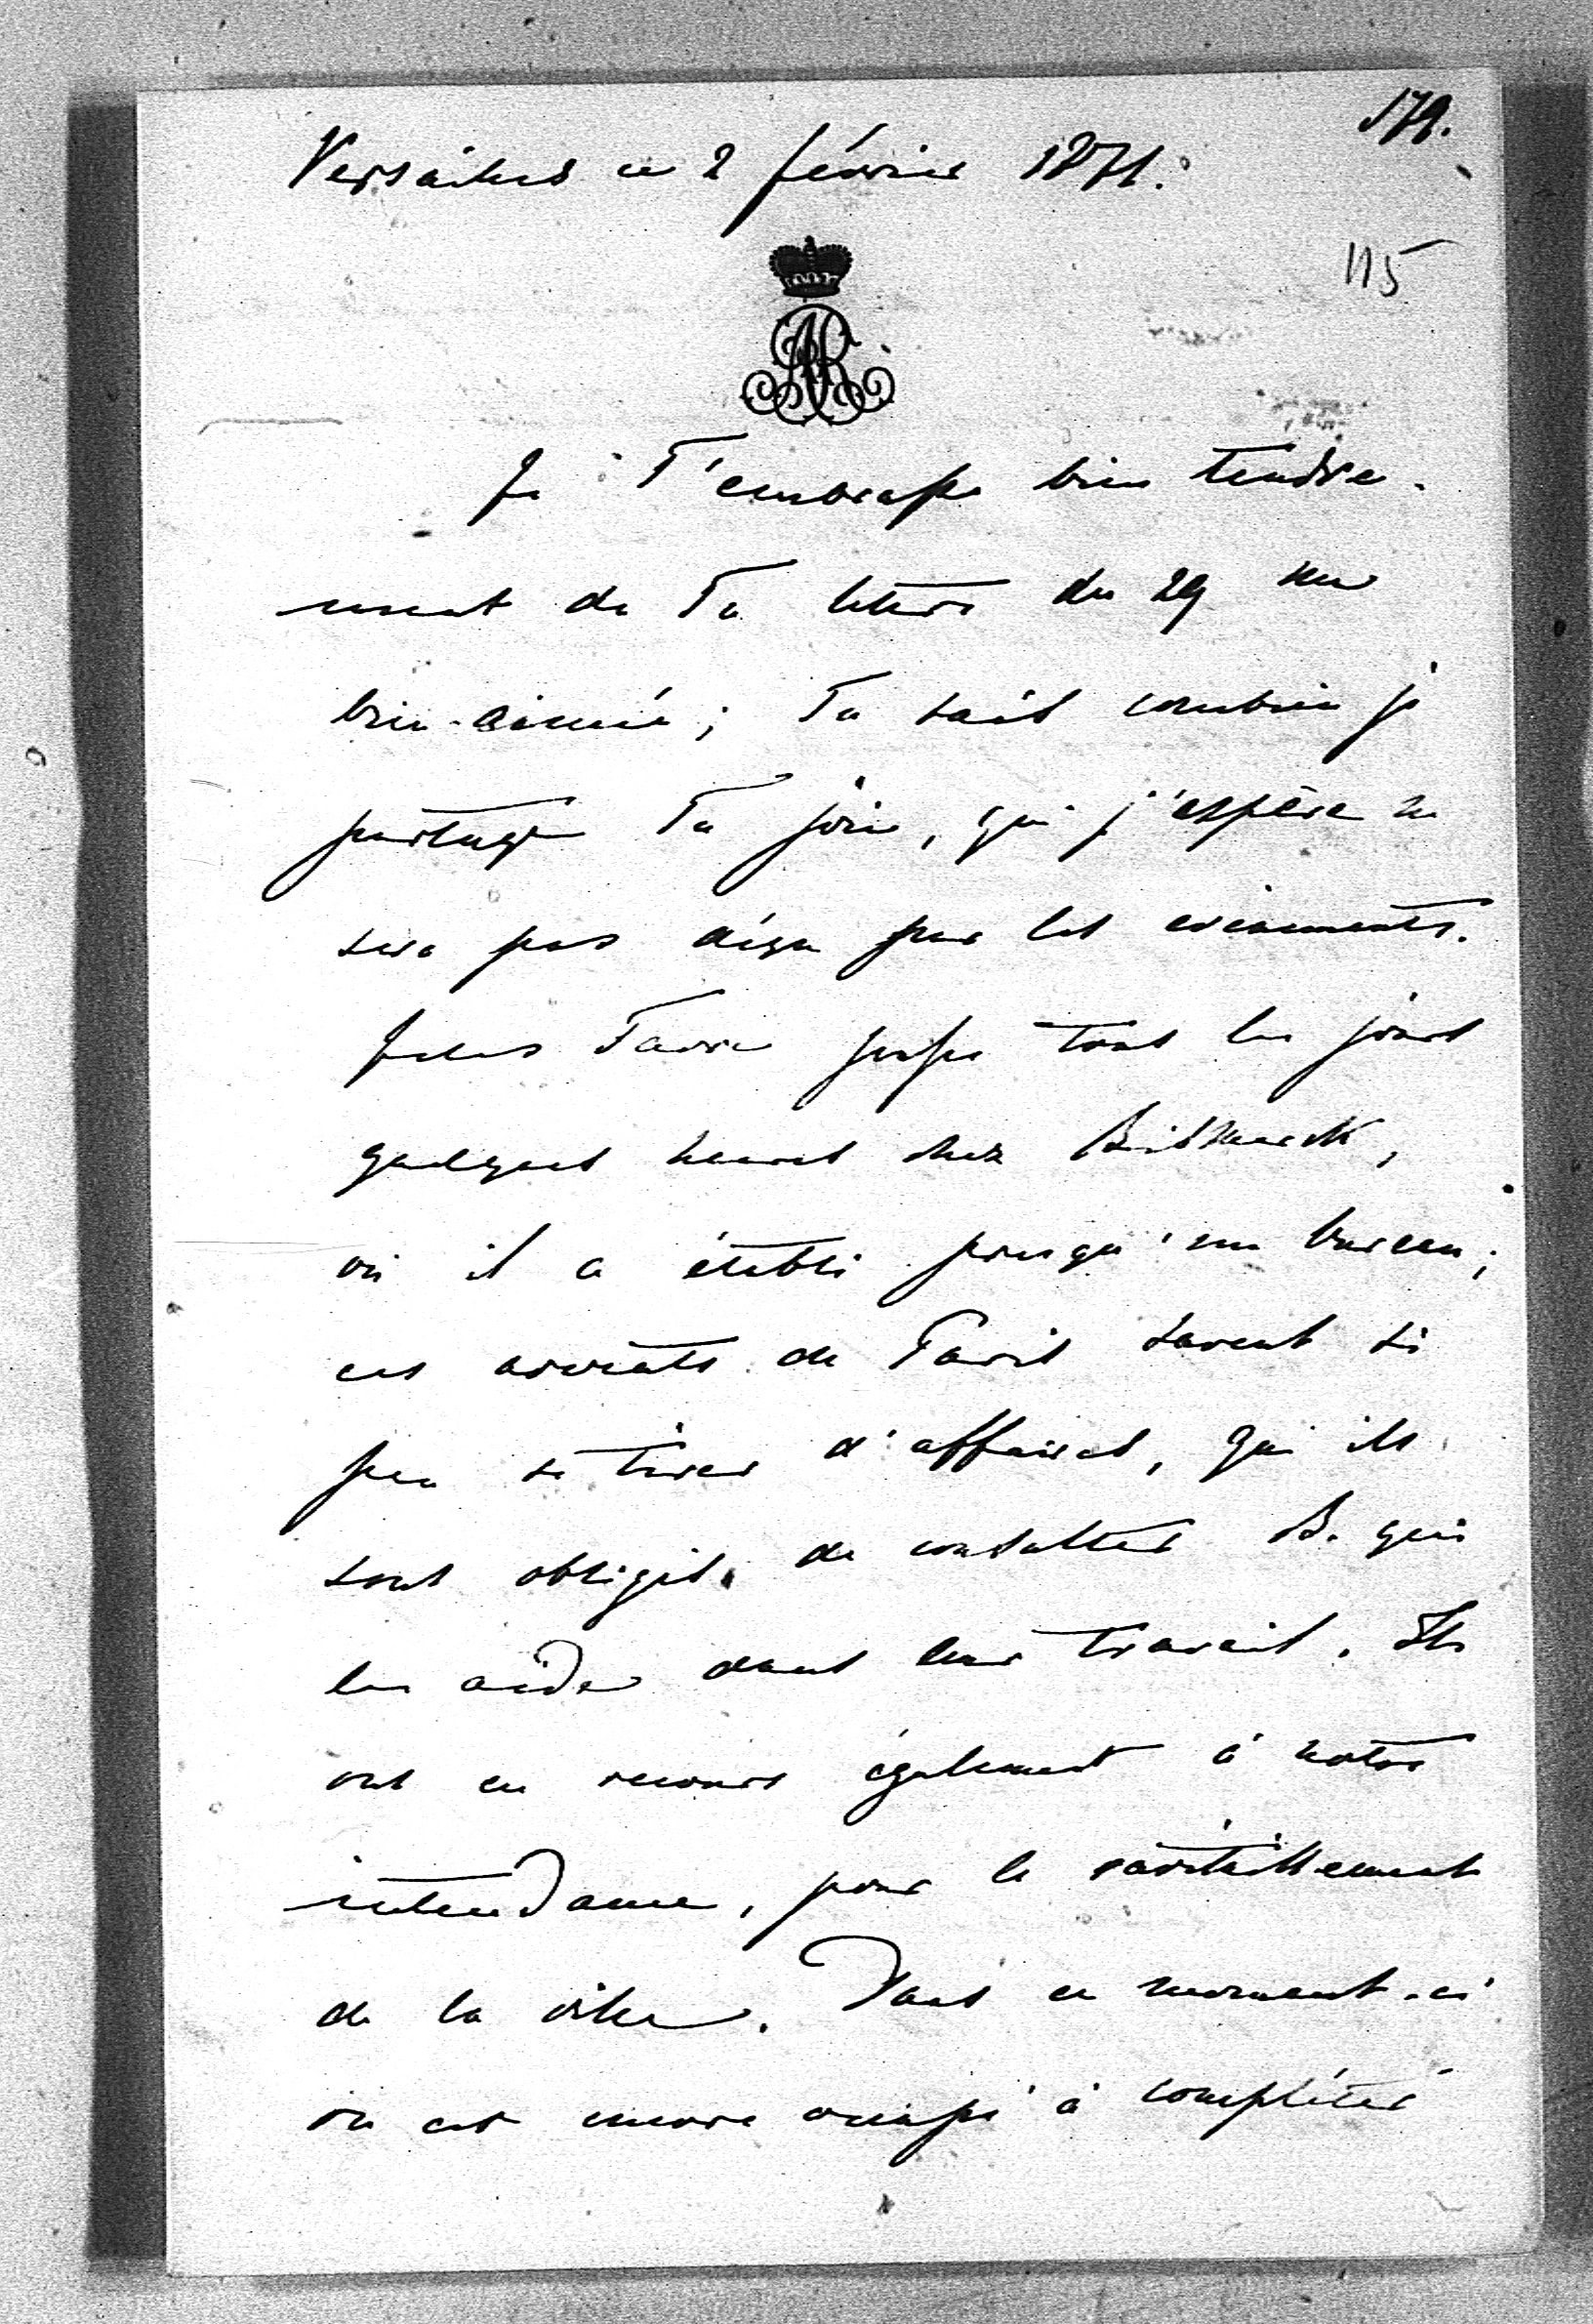 179.
Versailles ce 2 février 1871.
115
Je T'embrasse bien tendre-
ment de Ta lettre du 29 mon
bien-aimée; Tu sais combien je
partage Ta joie, qui j'espère ne
sera pas déçu par les evénements.
Jules Favre passe tous les jours
quelques heures chez Bismarck,
où il a établi presqu'un bureau;
ces avocats de Paris savent si
peu se tirer d'affaires, qu'ils
sont obligés de consulter B. qui
les aide dans leur travail. Ils
ont eu recours également à notre
intendance, pour le ravitaillement
de la ville. Dans ce moment-ci
on est encore occupé à compléter